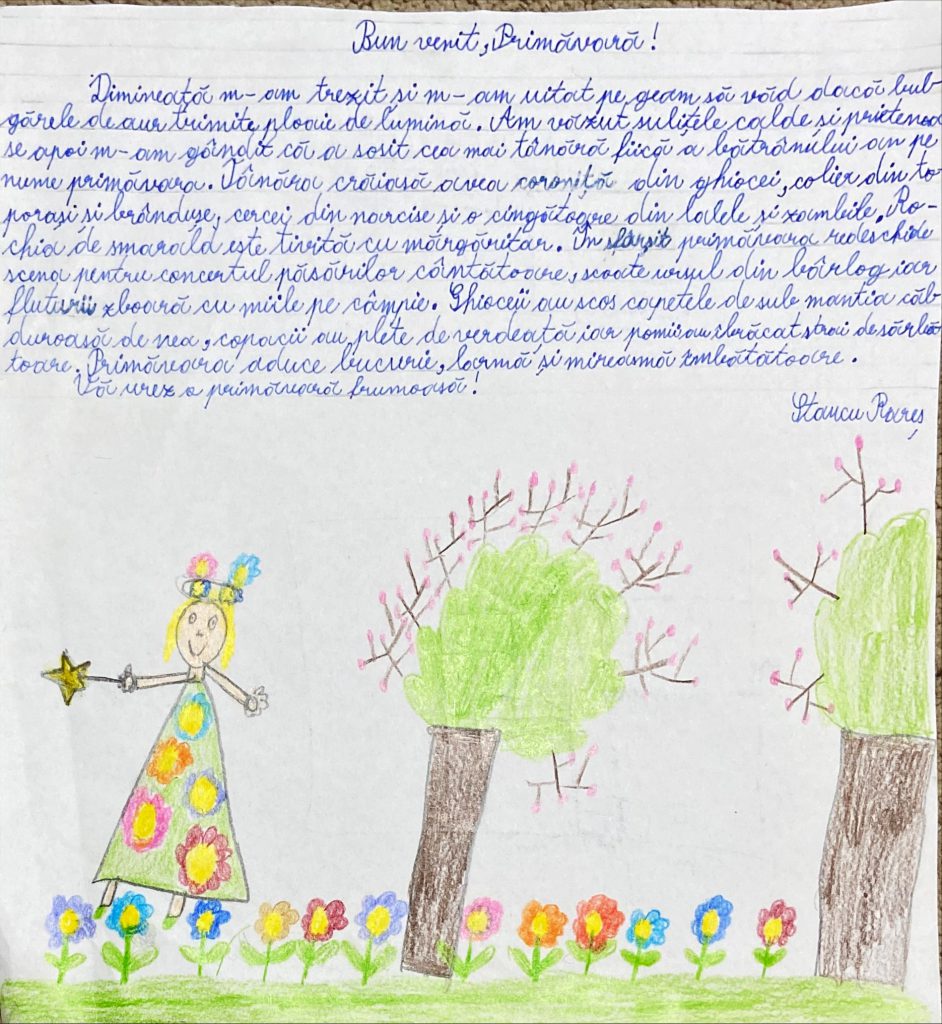 Bun venit, Primăvară!
Dimineață m-am trezit și m-am uitat pe geam să văd dacă bul-
gărele de aur trimite ploaie de lumină. Am văzut sulițele calde și prietenoa
se apoi m-am gândit că a sosit cea mai tânără fiică a bătrânului an pe
nume primăvara. Tânăra crăiasă avea coroniță din ghiocei, colier din to-
porași și brândușe, cercei din narcise și o cingătoare din lalele și zambile. Ro-
chia de smarald este tivită cu mărgăritar. În sfârșit primăvara redeschide
scena pentru concertul păsărilor cântătoare, scoate ursul din bârlog iar
fluturii zboară cu miile pe câmpie. Ghioceii au scos capetele de sub mantia căl-
duroasă de nea, copacii au plete de verdeată iar pomii au îmbrăcat strai de sărbă
toare. Primăvara aduce bucurie, larmă și mireasmă îmbătătoare.
Vă urez o primăvară frumoasă!
Stancu Rareș